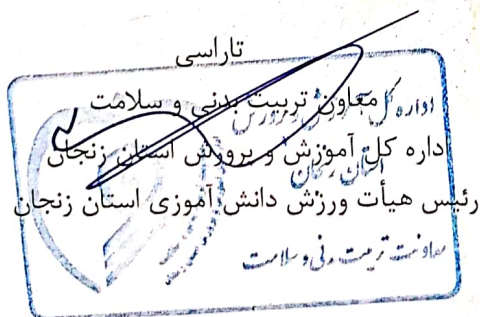 تاراسی
معاون تربیت بدنی و سلامت
اداره کل آموزش و پرورش استان زنجان
رئیس هیأت ورزش دانش آموزی استان زنجان
اداره کل آموزش و پرورش
استان زنجان
معاونت تربیت بدنی و سلامت